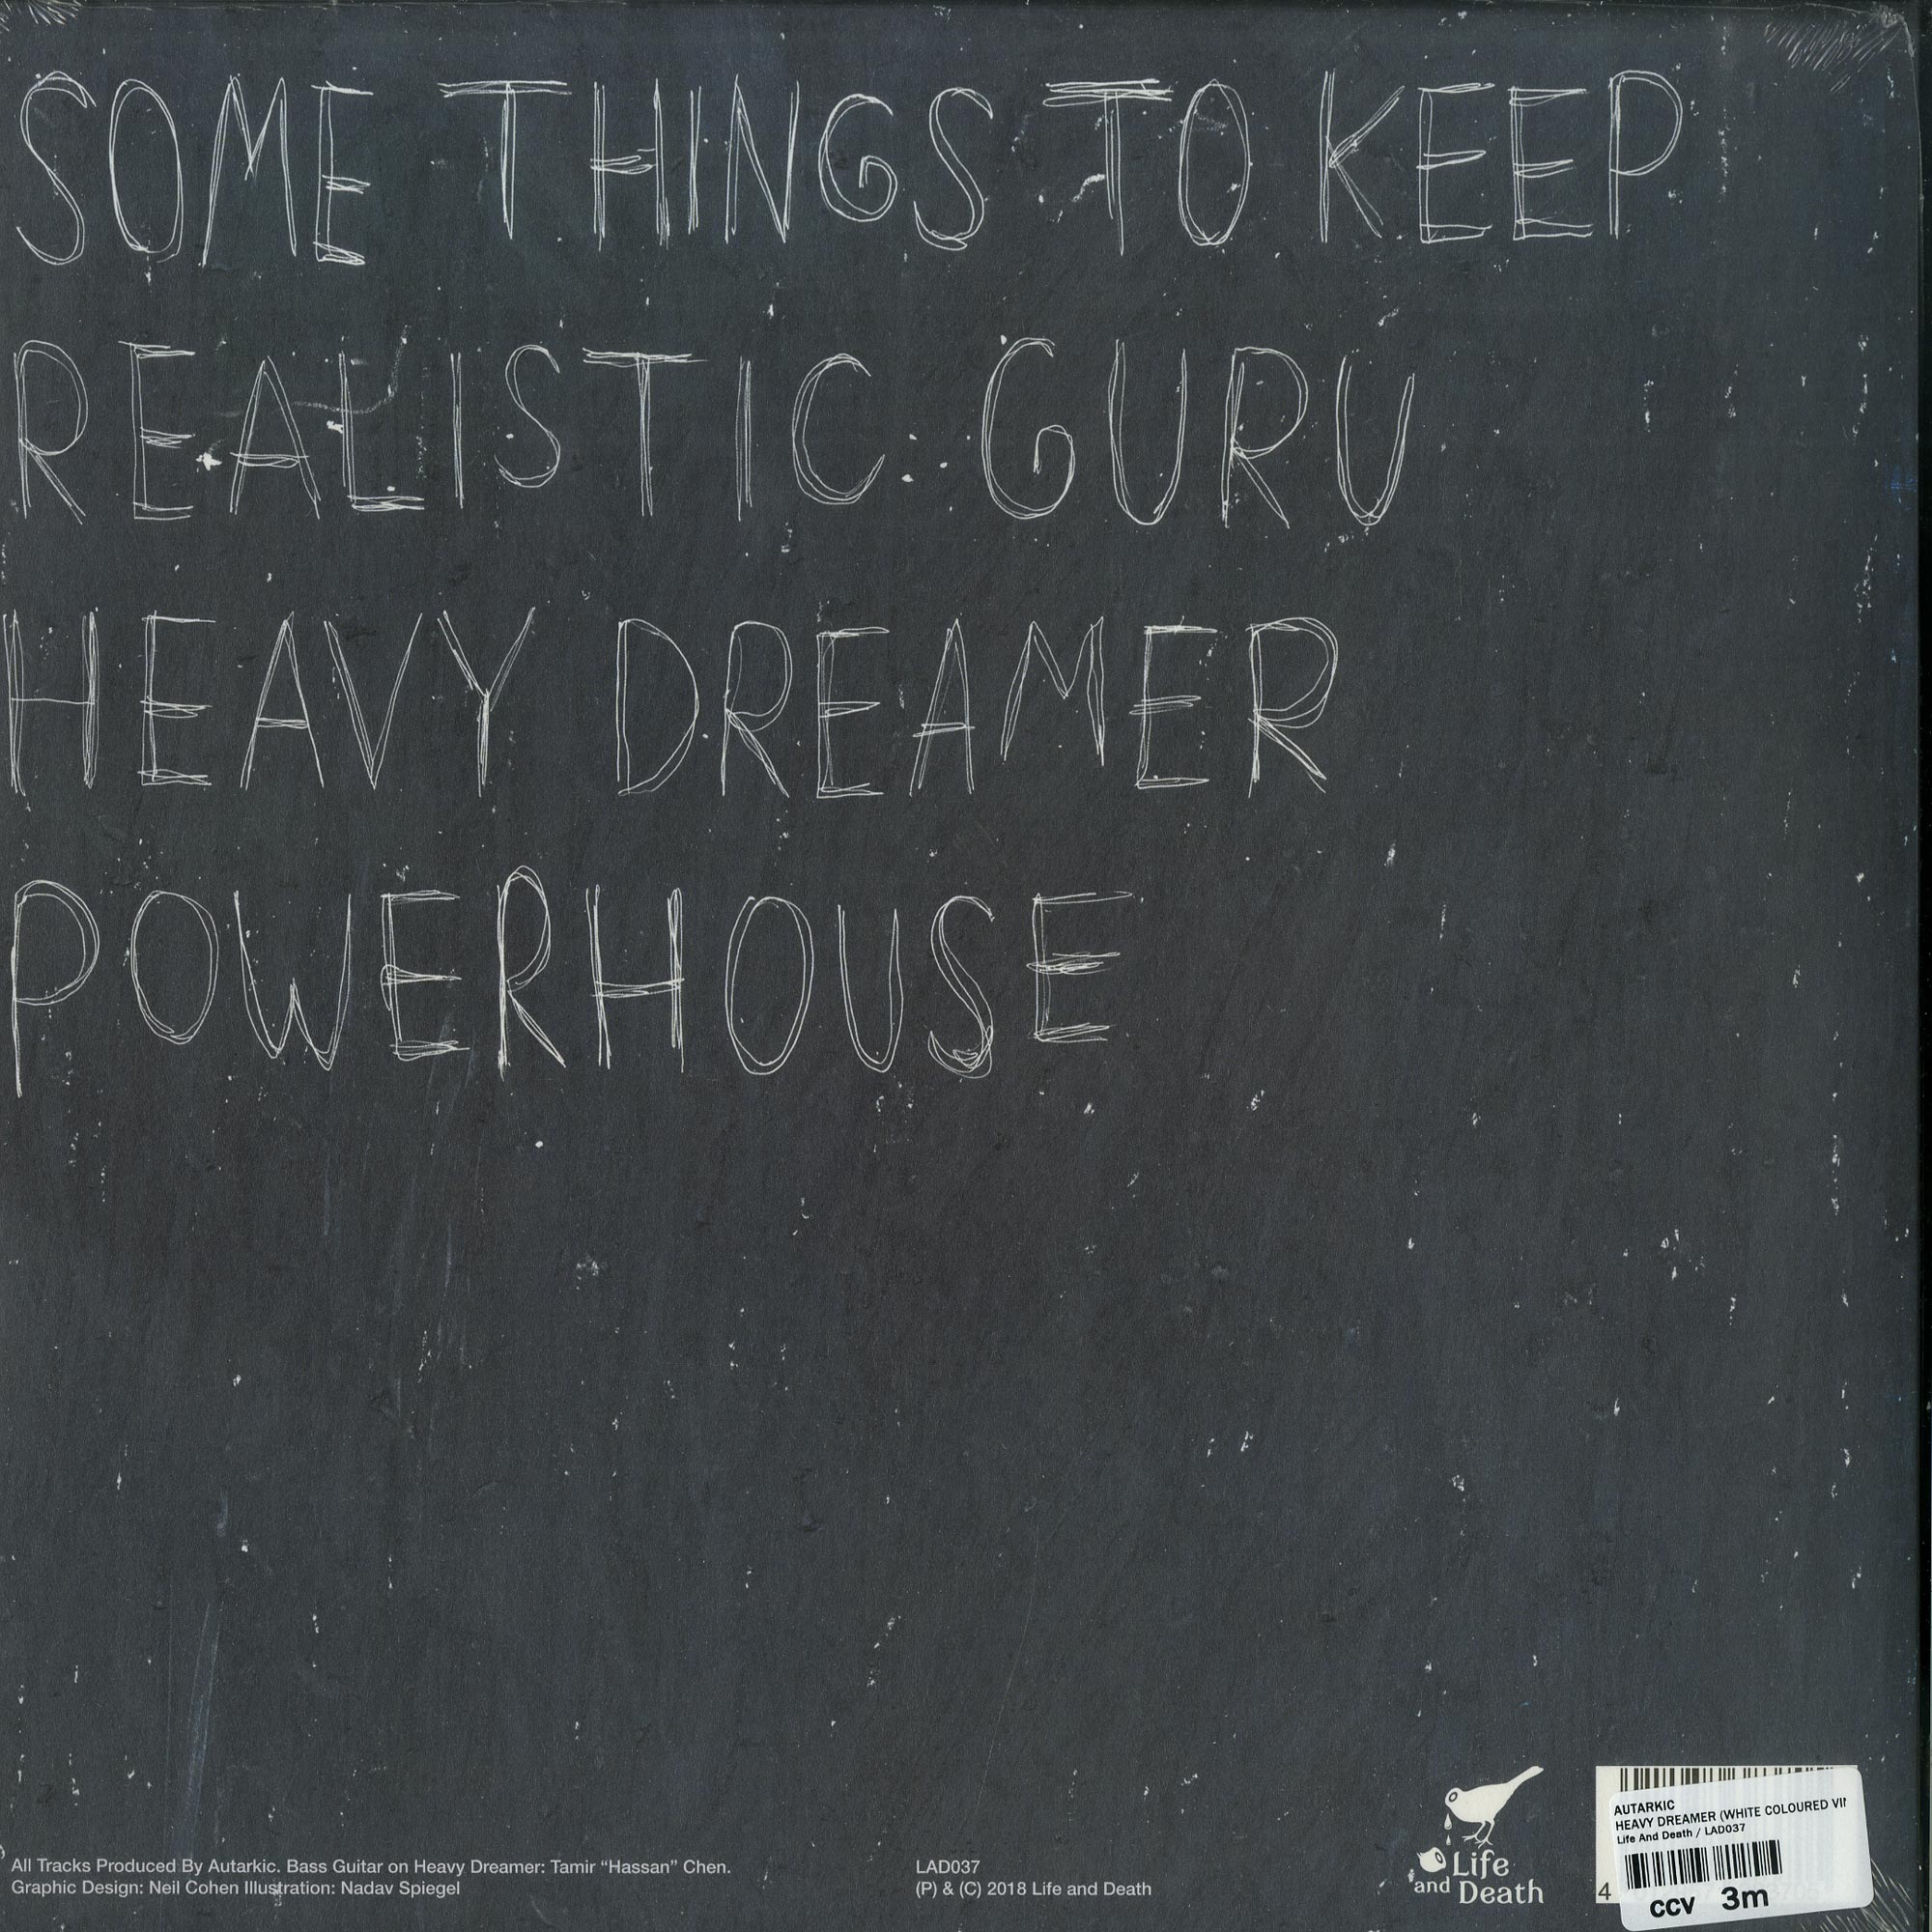 SOME THINGS TO KEEP
REALISTIC GURU
HEAVY DREAMER
POWERHOUSE
All Tracks Produced By Autarkic. Bass Guitar on Heavy Dreamer: Tamir “Hassan” Chen.
Graphic Design: Neil Cohen Illustration: Nadav Spiegel
LAD037
(P) & (C) 2018 Life and Death
Life
and Death
AUTARKIC
HEAVY DREAMER (WHITE COLOURED VI
Life And Death / LAD037
ccv 3m
4